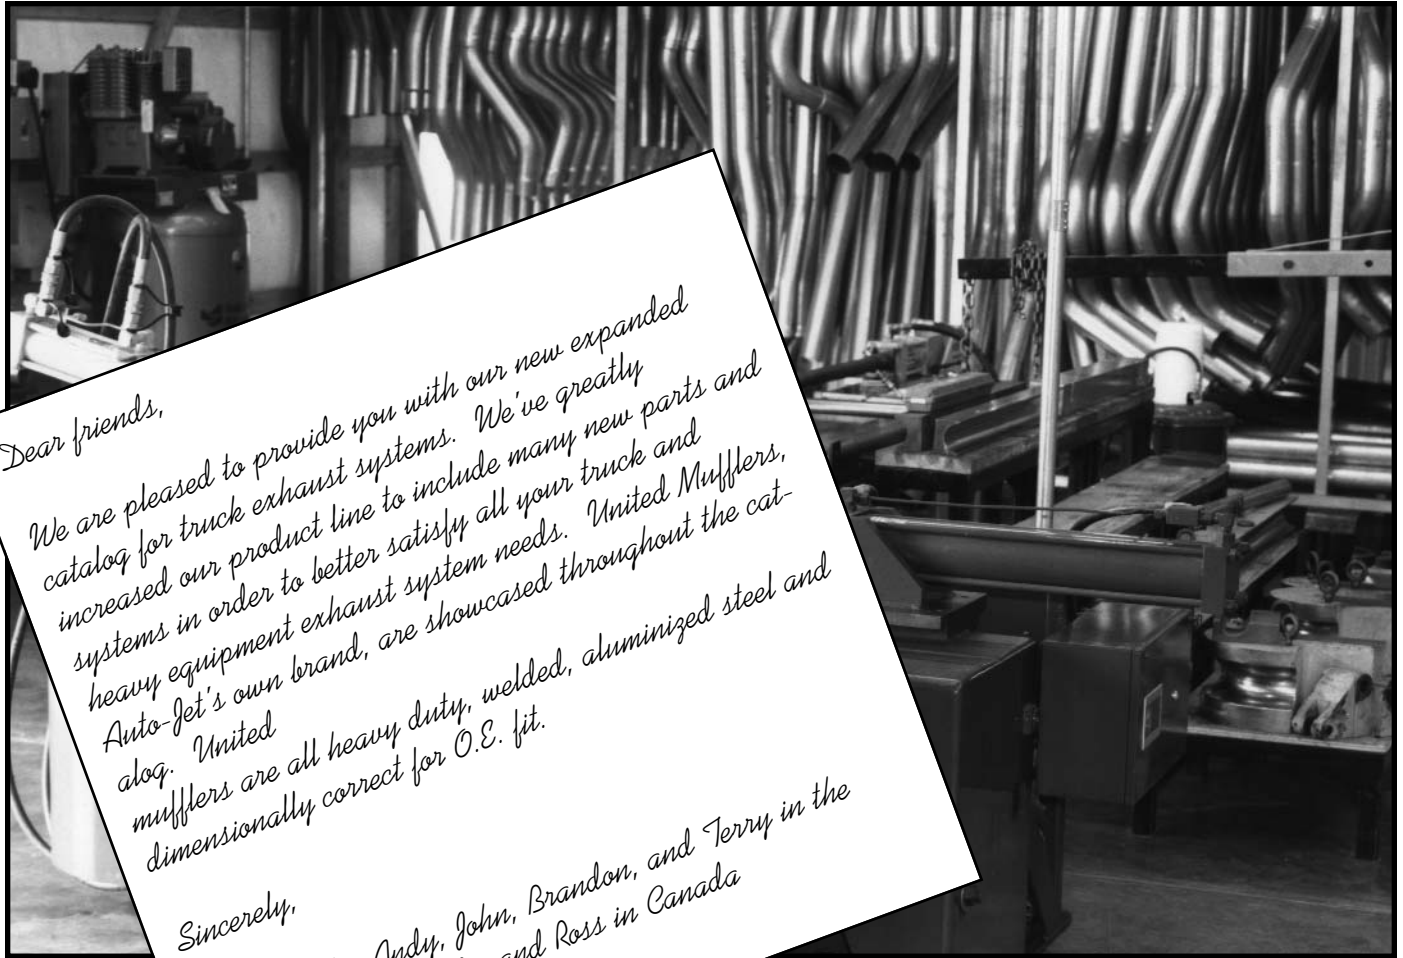 Dear friends,
We are pleased to provide you with our new expanded
catalog for truck exhaust systems.  We've greatly
increased our product line to include many new parts and
systems in order to better satisfy all your truck and
heavy equipment exhaust system needs.  United Mufflers,
Auto-Jet's own brand, are showcased throughout the cat-
alog.  United
mufflers are all heavy duty, welded, aluminized steel and
dimensionally correct for O.E. fit.
Sincerely,
Andy, John, Brandon, and Terry in the
and Ross in Canada